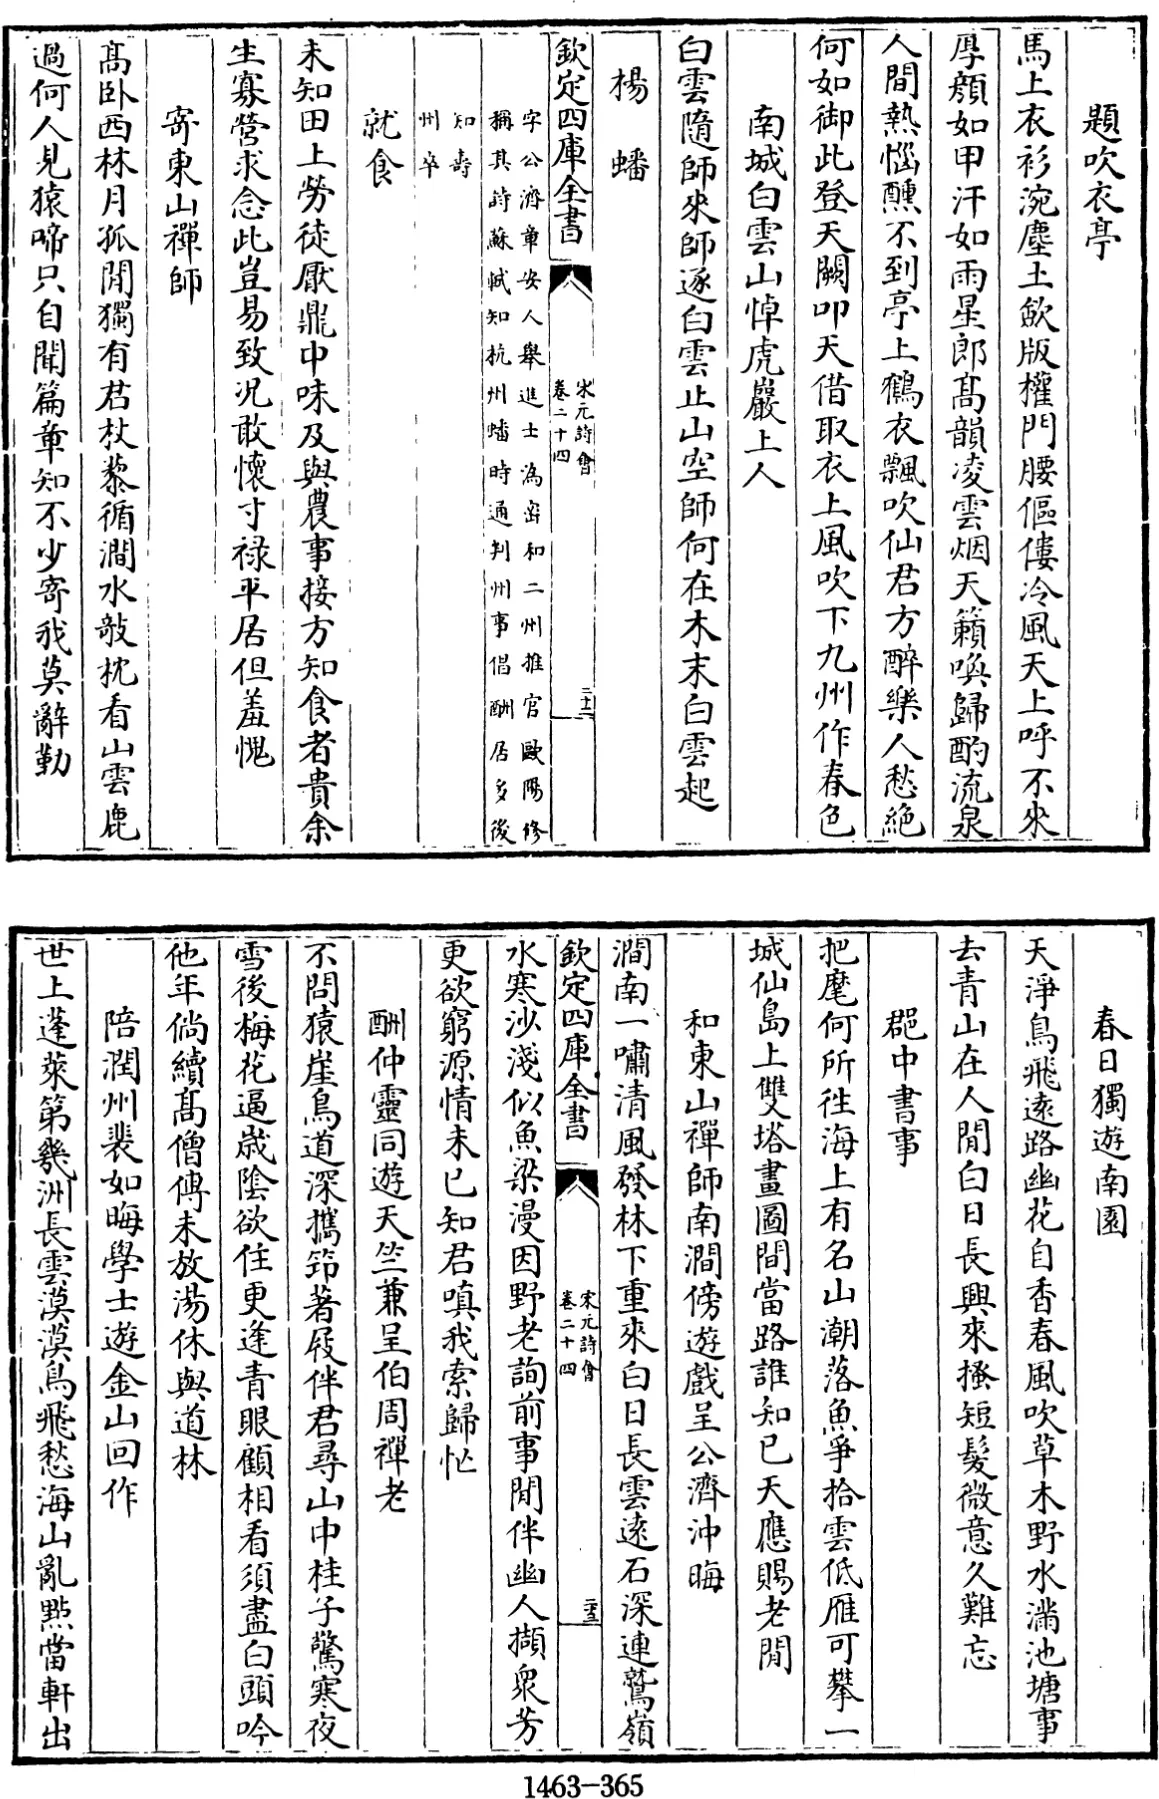 題吹衣亭
馬上衣衫涴塵土歛版權門腰傴僂冷風天上呼不來
厚顔如甲汗如雨星郎髙韻凌雲烟天籟喚歸酌流泉
人間熱惱醺不到亭上鶴衣飄吹仙君方醉樂人愁絶
何如御此登天闕叩天借取衣上風吹下九州作春色
南城白雲山悼虎巖上人
白雲隨師來師逐白雲止山空師何在木末白雲起
楊蟠
欽定四庫全書
宋元詩會
卷二十四
二十二
字公濟章安人舉進士為密和二州推官歐陽修
稱其詩蘇軾知杭州蟠時通判州事倡酬居多後
知壽
州卒
就食
未知田上勞徒厭鼎中味及與農事接方知食者貴余
生寡營求念此豈易致况敢懷寸禄平居但羞愧
寄東山禪師
髙卧西林月孤閒獨有君杖藜循澗水敲枕看山雲鹿
過何人見猿啼只自聞篇章知不少寄我莫辭勤
春日獨遊南園
天淨鳥飛逺路幽花自香春風吹草木野水滿池塘事
去青山在人閒白日長興來搔短髮微意久難忘
郡中書事
把麾何所徃海上有名山潮落魚爭拾雲低雁可攀一
城仙島上雙塔畫圖間當路誰知已天應賜老閒
和東山禪師南澗傍遊戲呈公濟沖晦
澗南一嘯清風發林下重來白日長雲逺石深連鷲嶺
欽定四庫全書
宋元詩會
卷二十四
二十三
水寒沙淺似魚梁漫因野老詢前事閒伴幽人擷衆芳
更欲窮源情未已知君嗔我索歸忙
酬仲靈同遊天竺兼呈伯周禪老
不問猿崖鳥道深攜笻著屐伴君尋山中桂子驚寒夜
雪後梅花逼歲陰欲住更逢青眼顧相看須盡白頭吟
他年倘續髙僧傳未放湯休與道林
陪潤州裴如晦學士遊金山回作
世上蓬萊第幾洲長雲漠漠鳥飛愁海山亂點當軒出
1463-365